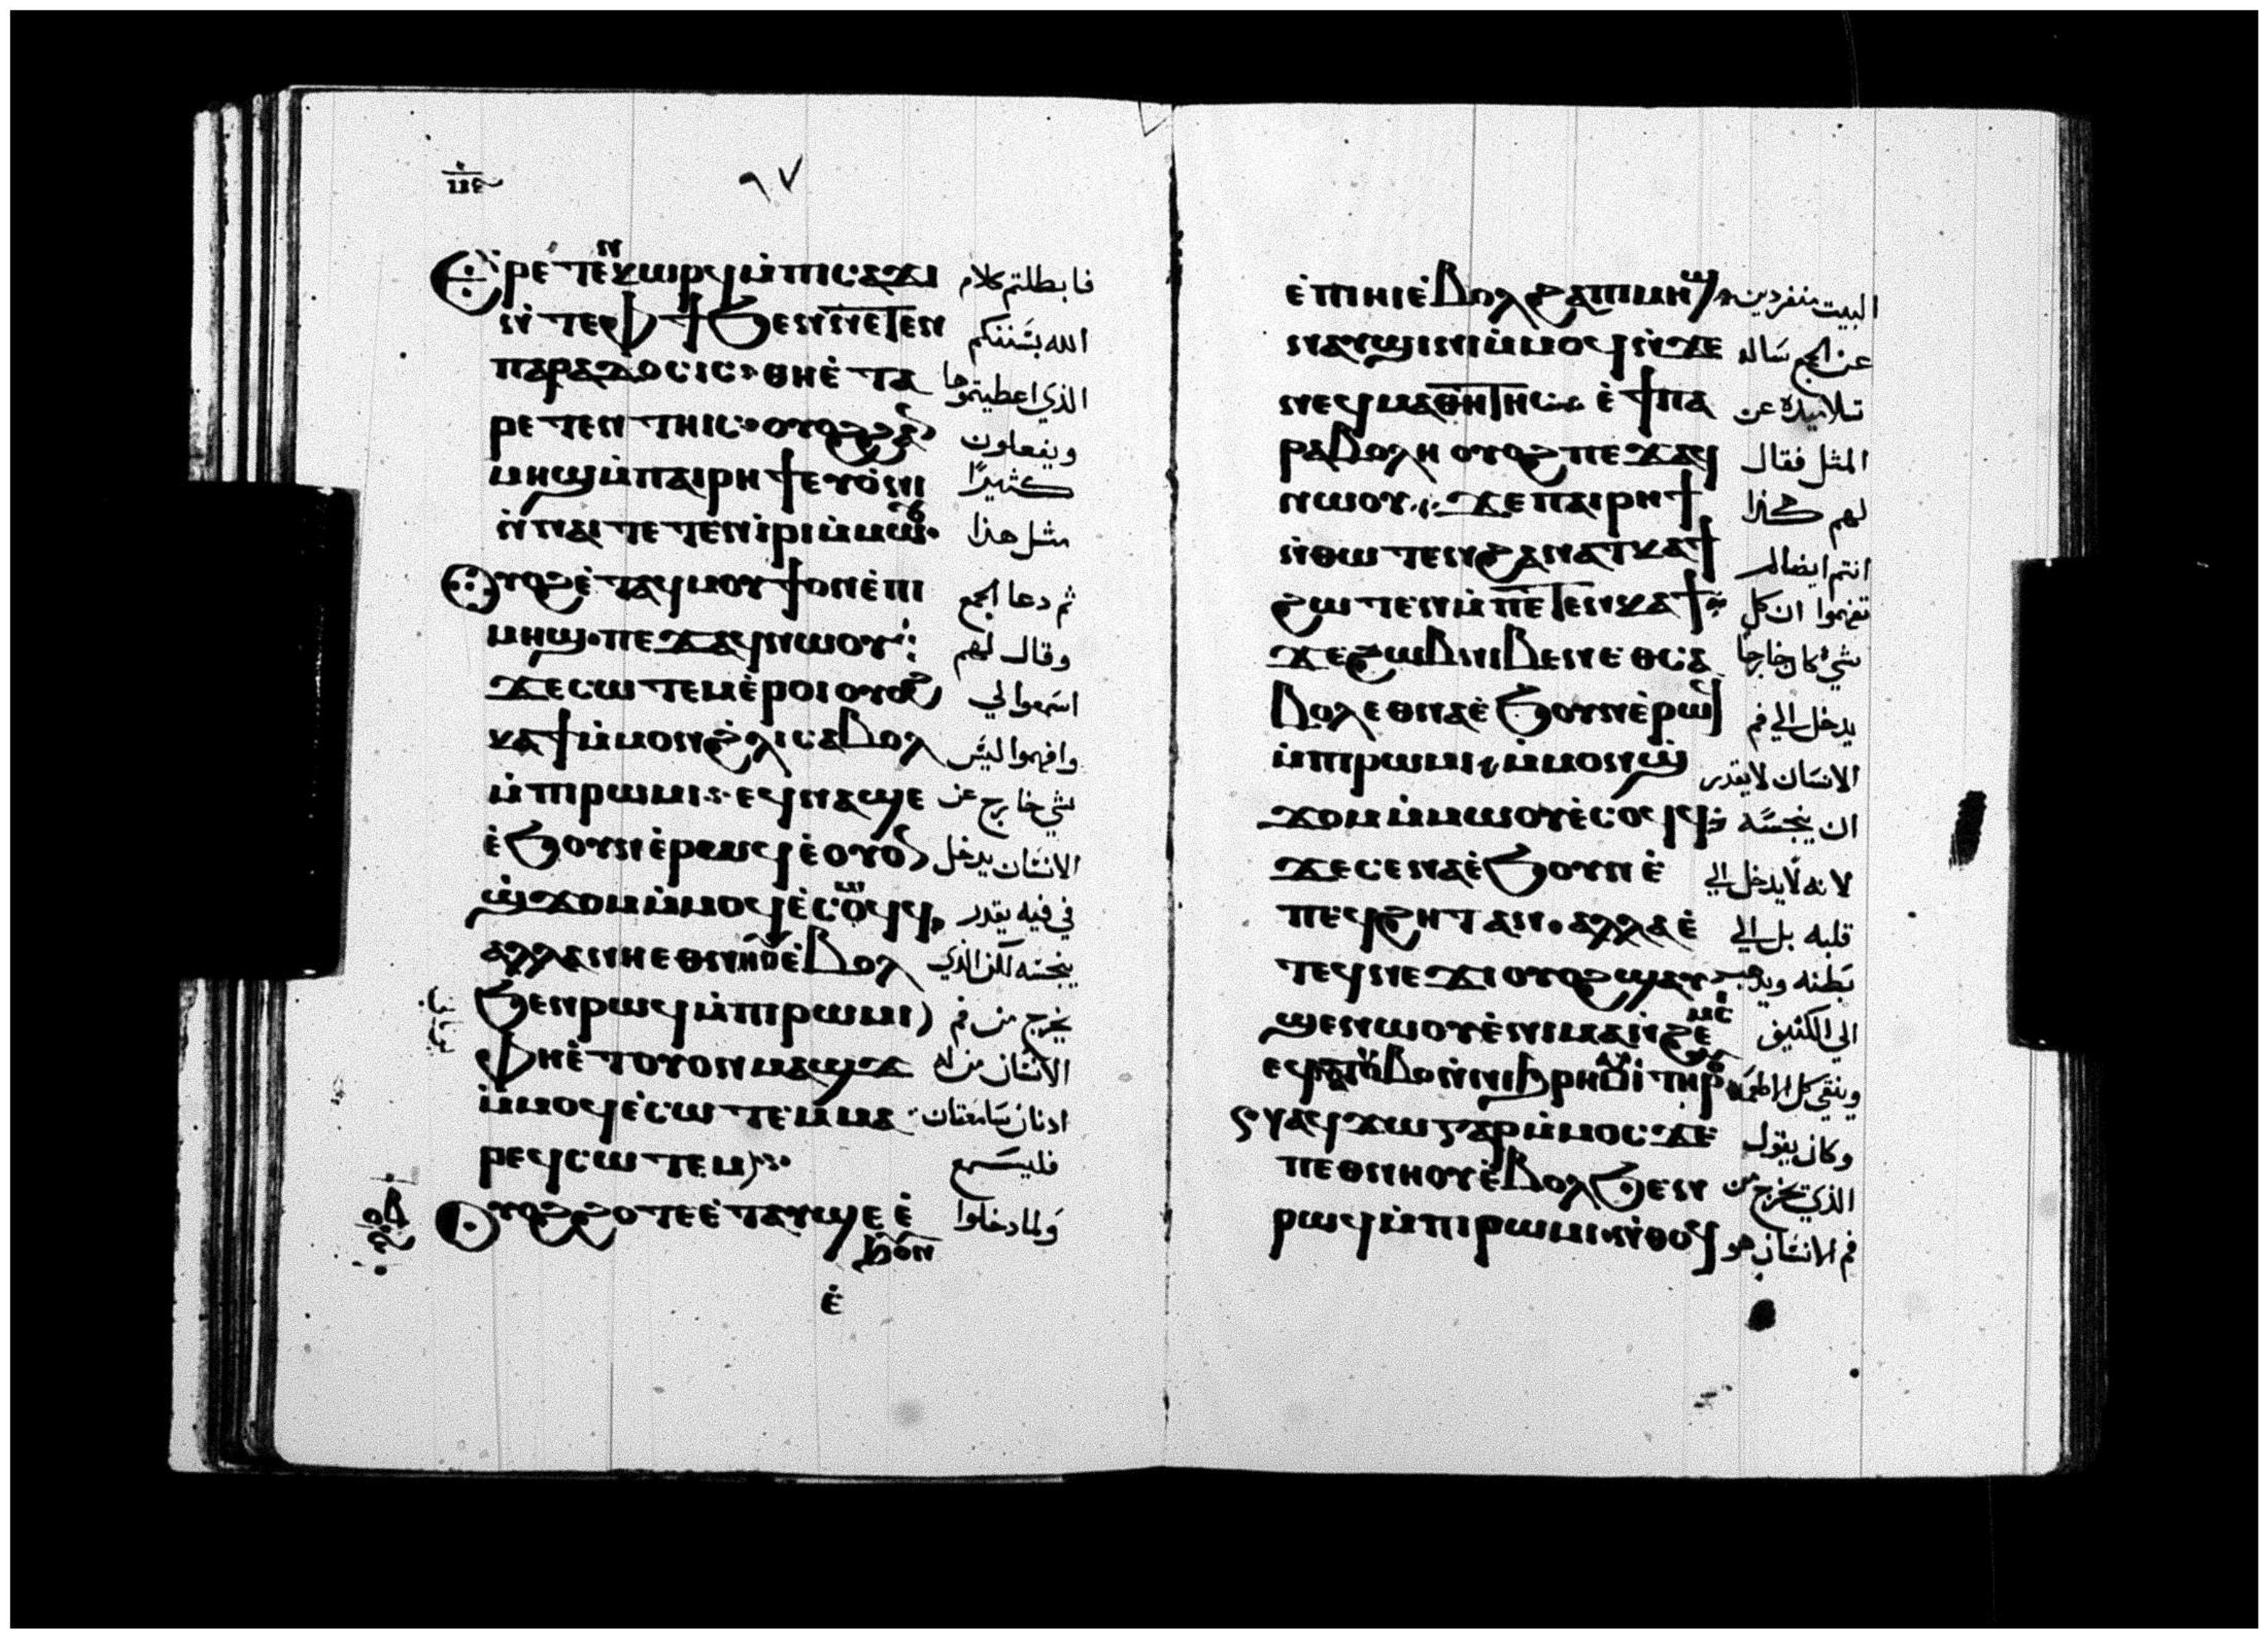 ٩٧
Ⲉⲣⲉⲧⲉⲛⲕⲱⲣϥ ⲙ̀ⲡⲓⲥⲁϫⲓ فابطلتم كلام
ⲛ̀ⲧⲉⲫϯ ϧⲉⲛⲛⲉⲧⲉⲛ الله بسننكم
ⲡⲁⲣⲁⲇⲟⲥⲓⲥ ⲑⲏⲉ̀ⲧⲁ الذي اعطيتموها
ⲣⲉⲧⲉⲛⲧⲏⲓⲥ ⲟⲩⲟϩ ϩⲁⲛ ويفعلون
ⲙⲏϣ ⲙ̀ⲡⲁⲓⲣⲏϯ ⲉⲩⲟ̀ⲛⲓ كثيرًا
ⲛ̀ⲛⲁⲓ ⲧⲉⲧⲉⲛⲓ̀ⲣⲓ ⲙ̀ⲙⲱⲟⲩ مثل هذا
Ⲟⲩⲟϩ ⲉ̀ⲧⲁϥⲙⲟⲩϯ ⲟⲛ ⲉ̀ⲡⲓ ثم دعا الجمع
ⲙⲏϣ ⲡⲉϫⲁϥ ⲛⲱⲟⲩ وقال لهم
ϫⲉ ⲥⲱⲧⲉⲙ ⲉ̀ⲣⲟⲓ ⲟⲩⲟϩ اسمعوا لي
ⲕⲁϯ ⲙ̀ⲙⲟⲛ ϩ̀ⲗⲓ ⲥⲁⲃⲟⲗ وافهموا ليس
ⲙ̀ⲡⲓⲣⲱⲙⲓ ⲉϥⲛⲁϣⲉ شي خارج عن
ⲉ̀ϧⲟⲩⲛ ⲉ̀ⲣⲱϥ ⲉ̀ⲟⲩⲟⲛ الانسان يدخل
ϣ̀ϫⲟⲙ ⲙ̀ⲙⲟϥ ⲉ̀ⲥⲟϥϥ في فيه يقدر
ⲁⲗⲗⲁ ⲛⲏⲉⲑⲛⲏⲟⲩ ⲉ̀ⲃⲟⲗ ينجسه لكن الذي
ϧⲉⲛ ⲣⲱϥ ⲙ̀ⲡⲓⲣⲱⲙⲓ يخرج من فم
ⲫⲏⲉ̀ⲧⲟⲩⲟⲛ ⲙⲁϣϫ الانسان من له
ⲙ̀ⲙⲟϥ ⲉ̀ⲥⲱⲧⲉⲙ ⲙⲁ ادنان سامعتان
ⲣⲉϥⲥⲱⲧⲉⲙ فليسمع
Ⲟⲩⲟϩ ϩⲟⲧⲉ ⲉ̀ⲧⲁⲩϣⲉ ⲉ̀ ولما دخلوا
ϧⲟⲩⲛ
ⲉ̀
ⲉ̀ⲡⲓⲏⲓ ⲉ̀ⲃⲟⲗϩⲁ ⲡⲓⲙⲏϣ البيت منفردين
ⲛⲁⲩϣⲓⲛⲓ ⲙ̀ⲙⲟϥ ⲛ̀ϫⲉ عن الجمع ساله
ⲛⲉϥⲙⲁⲑⲏⲧⲏⲥ ⲉ̀ϯⲡⲁ تلاميده عن
ⲣⲁⲃⲟⲗⲏ ⲟⲩⲟϩ ⲡⲉϫⲁϥ المثل فقال
ⲛⲱⲟⲩ ϫⲉ ⲡⲁⲓⲣⲏϯ لهم هكذا
ⲛ̀ⲑⲱⲧⲉⲛ ϩⲁⲛⲁⲧⲕⲁϯ انتم ايضا لم
ϩⲱⲧⲉⲛ ⲙ̀ⲡⲉⲧⲉⲛⲕⲁϯ تفهموا ان كل
ϫⲉ ϩⲱⲃ ⲛⲓⲃⲉⲛ ⲉⲑⲥⲁ شيء كان خارجا
ⲃⲟⲗ ⲉⲑⲛⲁ ⲉ̀ϧⲟⲩⲛ ⲉ̀ⲣⲱϥ يدخل الي فم
ⲙ̀ⲡⲓⲣⲱⲙⲓ ⲙ̀ⲙⲟⲛ ϣ̀ الانسان لا يقدر
ϫⲟⲙ ⲙ̀ⲙⲱⲟⲩ ⲉ̀ⲥⲟϥϥ ان ينجسه
ϫⲉ ⲥⲉⲛⲁ ⲉ̀ϧⲟⲩⲛ ⲉ̀ لانه لا يدخل الي
ⲡⲉϥϩⲏⲧ ⲁⲛ ⲁⲗⲗⲁ ⲉ̀ قلبه بل الي
ⲧⲉϥⲛⲉϫⲓ ⲟⲩⲟϩ ϣⲁⲩ بطنه ويذهب
ϣⲉⲛⲱⲟⲩ ⲉ̀ⲛⲓⲙⲁⲛ̀ϩⲉⲙⲥⲓ الي الكنيف
وينقي كل الاطعمه
ⲛⲁϥϫⲱ ⲅⲁⲣ ⲙ̀ⲙⲟⲥ ϫⲉ وكان يقول
ⲡⲉⲑⲛⲏⲟⲩ ⲉ̀ⲃⲟⲗ ϧⲉⲛ الذي يخرج من
ⲣⲱϥ ⲙ̀ⲡⲓⲣⲱⲙⲓ ⲛ̀ⲑⲟϥ فم الانسان هو